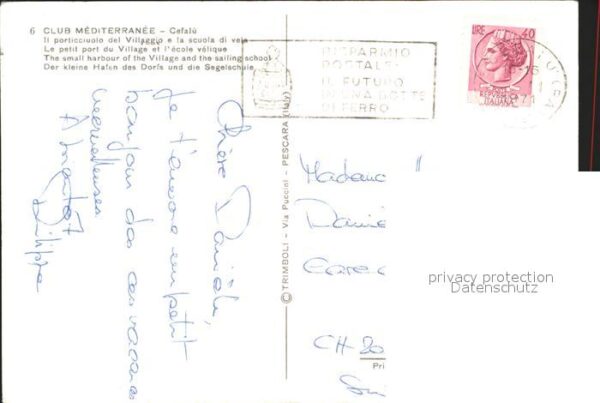 6 CLUB MÉDITERRANÉE - Cefalù
Il porticciuolo del Villaggio e la scuola di vela
Le petit port du Village et l'école vélique
The small harbour of the Village and the sailing school
Der kleine Hafen des Dorfs und die Segelschule
RISPARMIO
POSTALE:
IL FUTURO
IN UNA BOTTE
DI FERRO
LIRE 40
POSTE
REPUBBLICA
ITALIANA
Chère Danièle,
Je t'envoie un petit
bonjour des vacances
merveilleuses
A bientôt
Philippe
© TRIMBOLI - Via Puccini - PESCARA (Italy)
Madame
CH-80
Pri
privacy protection
Datenschutz